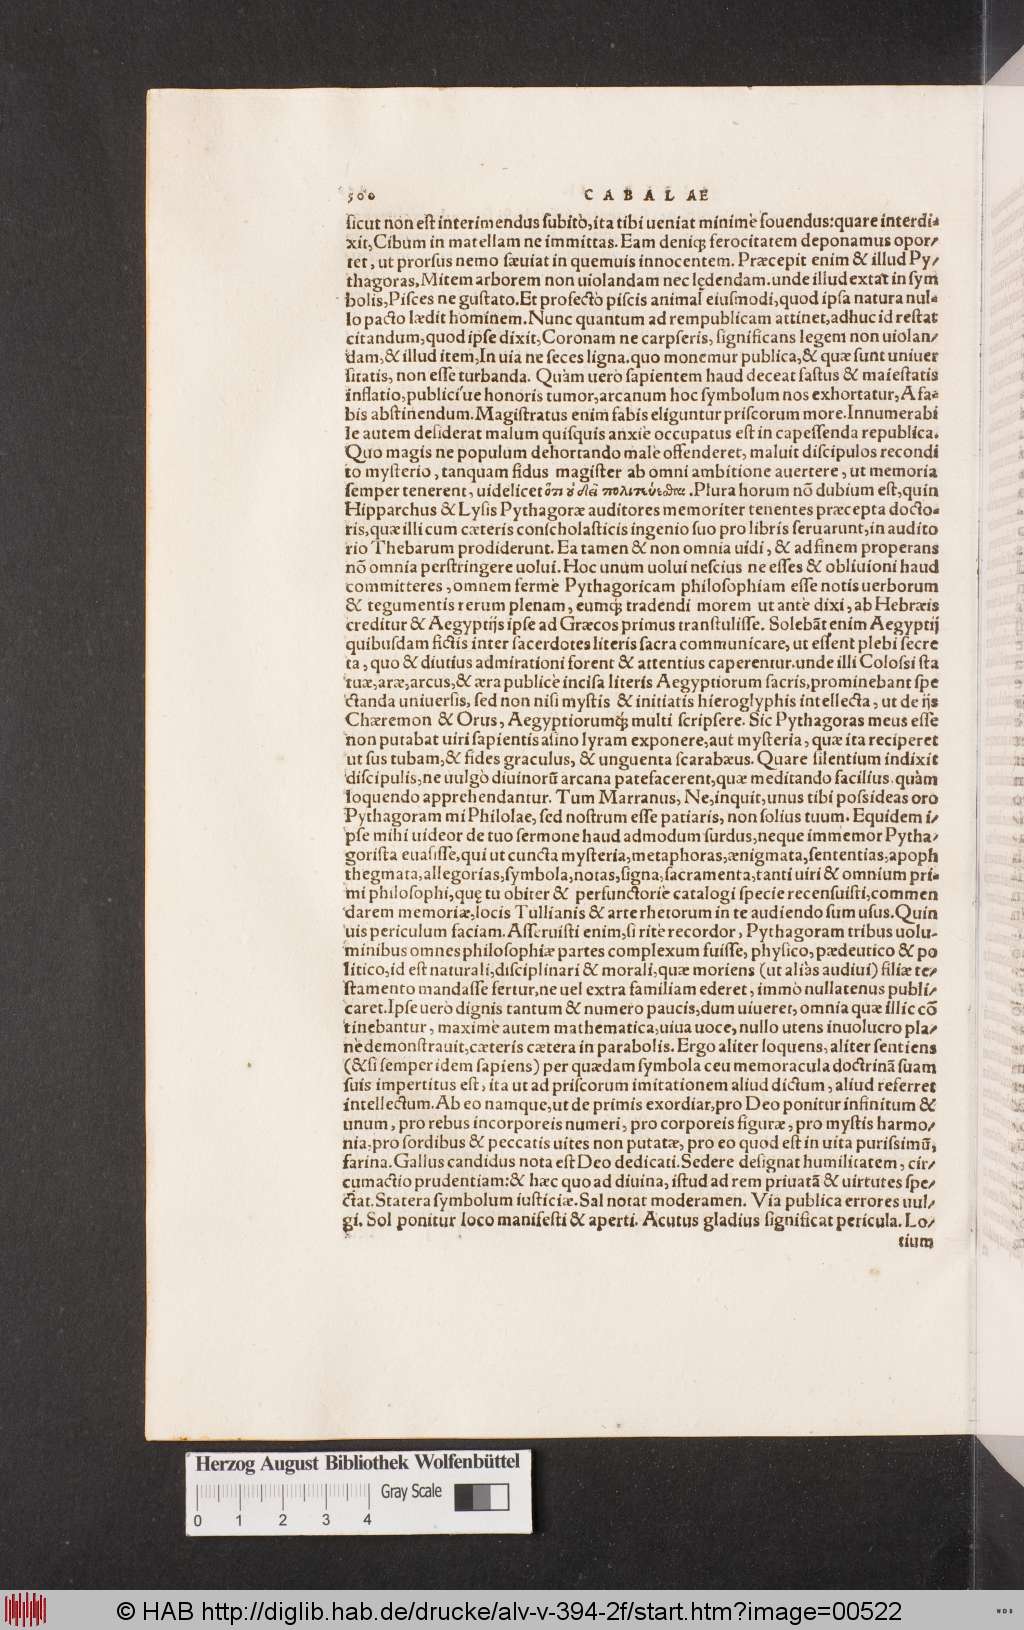 500 CABALAE
ſicut non eſt interimendus ſubitò, ita tibi ueniat minimè fouendus: quare interdi-
xit, Cibum in matellam ne immittas. Eam deniqꝫ ferocitatem deponamus opor/
tet, ut prorſus nemo ſæuiat in quemuis innocentem. Præcepit enim & illud Py/
thagoras, Mitem arborem non uiolandam nec lędendam. unde illud extat in ſym
bolis, Piſces ne guſtato. Et profectò piſcis animal eiuſmodi, quod ipſa natura nul-
lo pacto lædit hominem. Nunc quantum ad rempublicam attinet, adhuc id reſtat
citandum, quod ipſe dixit, Coronam ne carpſeris, ſignificans legem non uiolan/
dam, & illud item, In uia ne ſeces ligna. quo monemur publica, & quæ ſunt uniuer
ſitatis, non eſſe turbanda. Quàm uerò ſapientem haud deceat faſtus & maieſtatis
inflatio, publici ue honoris tumor, arcanum hoc ſymbolum nos exhortatur, A fa-
bis abſtinendum. Magiſtratus enim fabis eliguntur priſcorum more. Innumerabi
le autem deſiderat malum quiſquis anxiè occupatus eſt in capeſſenda republica.
Quo magis ne populum dehortando malè offenderet, maluit diſcipulos recondi
to myſterio, tanquam fidus magiſter ab omni ambitione auertere, ut memoria
ſemper tenerent, uidelicet ὅτι οὐ δεῖ πολιτεύεσθαι. Plura horum nõ dubium eſt, quin
Hipparchus & Lyſis Pythagoræ auditores memoriter tenentes præcepta docto-
ris, quæ illi cum cæteris conſcholaſticis ingenio ſuo pro libris ſeruarunt, in audito
rio Thebarum prodiderunt. Ea tamen & non omnia uidi, & ad finem properans
nõ omnia perſtringere uolui. Hoc unum uolui neſcius ne eſſes & obliuioni haud
committeres, omnem fermè Pythagoricam philoſophiam eſſe notis uerborum
& tegumentis rerum plenam, eumqꝫ tradendi morem ut antè dixi, ab Hebræis
creditur & Aegyptijs ipſe ad Græcos primus tranſtuliſſe. Solebãt enim Aegyptij
quibuſdam fictis inter ſacerdotes literis ſacra communicare, ut eſſent plebi ſecre
ta, quo & diutius admirationi forent & attentius caperentur. unde illi Coloſſi ſta
tuæ, aræ, arcus, & æra publicè inciſa literis Aegyptiorum ſacris, prominebant ſpe
ctanda uniuerſis, ſed non niſi myſtis & initiatis hieroglyphis intellecta, ut de ijs
Chæremon & Orus, Aegyptiorumqꝫ multi ſcripſere. Sic Pythagoras meus eſſe
non putabat uiri ſapientis aſino lyram exponere, aut myſteria, quæ ita reciperet
ut ſus tubam, & fides graculus, & unguenta ſcarabæus. Quare ſilentium indixit
diſcipulis, ne uulgò diuinorũ arcana patefacerent, quæ meditando facilius quàm
loquendo apprehendantur. Tum Marranus, Ne, inquit, unus tibi poſsideas oro
Pythagoram mi Philolae, ſed noſtrum eſſe patiaris, non ſolius tuum. Equidem i/
pſe mihi uideor de tuo ſermone haud admodum ſurdus, neque immemor Pytha/
goriſta euaſiſſe, qui ut cuncta myſteria, metaphoras, ænigmata, ſententias, apoph
thegmata, allegorias, ſymbola, notas, ſigna, ſacramenta, tanti uiri & omnium pri-
mi philoſophi, quę tu obiter & perfunctoriè catalogi ſpecie recenſuiſti, commen
darem memoriæ, locis Tullianis & arte rhetorum in te audiendo ſum uſus. Quin
uis periculum faciam. Aſſeruiſti enim, ſi ritè recordor, Pythagoram tribus uolu-
minibus omnes philoſophiæ partes complexum fuiſſe, phyſico, pædeutico & po
litico, id eſt naturali, diſciplinari & morali, quæ moriens (ut aliàs audiui) filiæ te/
ſtamento mandaſſe fertur, ne uel extra familiam ederet, immò nullatenus publi/
caret. Ipſe uerò dignis tantum & numero paucis, dum uiueret, omnia quæ illic cõ
tinebantur, maximè autem mathematica, uiua uoce, nullo utens inuolucro pla/
nè demonſtrauit, cæteris cætera in parabolis. Ergo aliter loquens, aliter ſentiens
(& ſi ſemper idem ſapiens) per quædam ſymbola ceu memoracula doctrinã ſuam
ſuis impertitus eſt, ita ut ad priſcorum imitationem aliud dictum, aliud referret
intellectum. Ab eo namque, ut de primis exordiar, pro Deo ponitur infinitum &
unum, pro rebus incorporeis numeri, pro corporeis figuræ, pro myſtis harmo/
nia, pro ſordibus & peccatis uites non putatæ, pro eo quod eſt in uita puriſsimũ,
farina. Gallus candidus nota eſt Deo dedicati. Sedere deſignat humilitatem, cir/
cumactio prudentiam: & hæc quo ad diuina, iſtud ad rem priuatã & uirtutes ſpe/
ctat. Statera ſymbolum iuſticiæ. Sal notat moderamen. Via publica errores uul/
gi. Sol ponitur loco manifeſti & aperti. Acutus gladius ſignificat pericula. Lo/
tium
Herzog August Bibliothek Wolfenbüttel
Gray Scale
0 1 2 3 4
© HAB http://diglib.hab.de/drucke/alv-v-394-2f/start.htm?image=00522